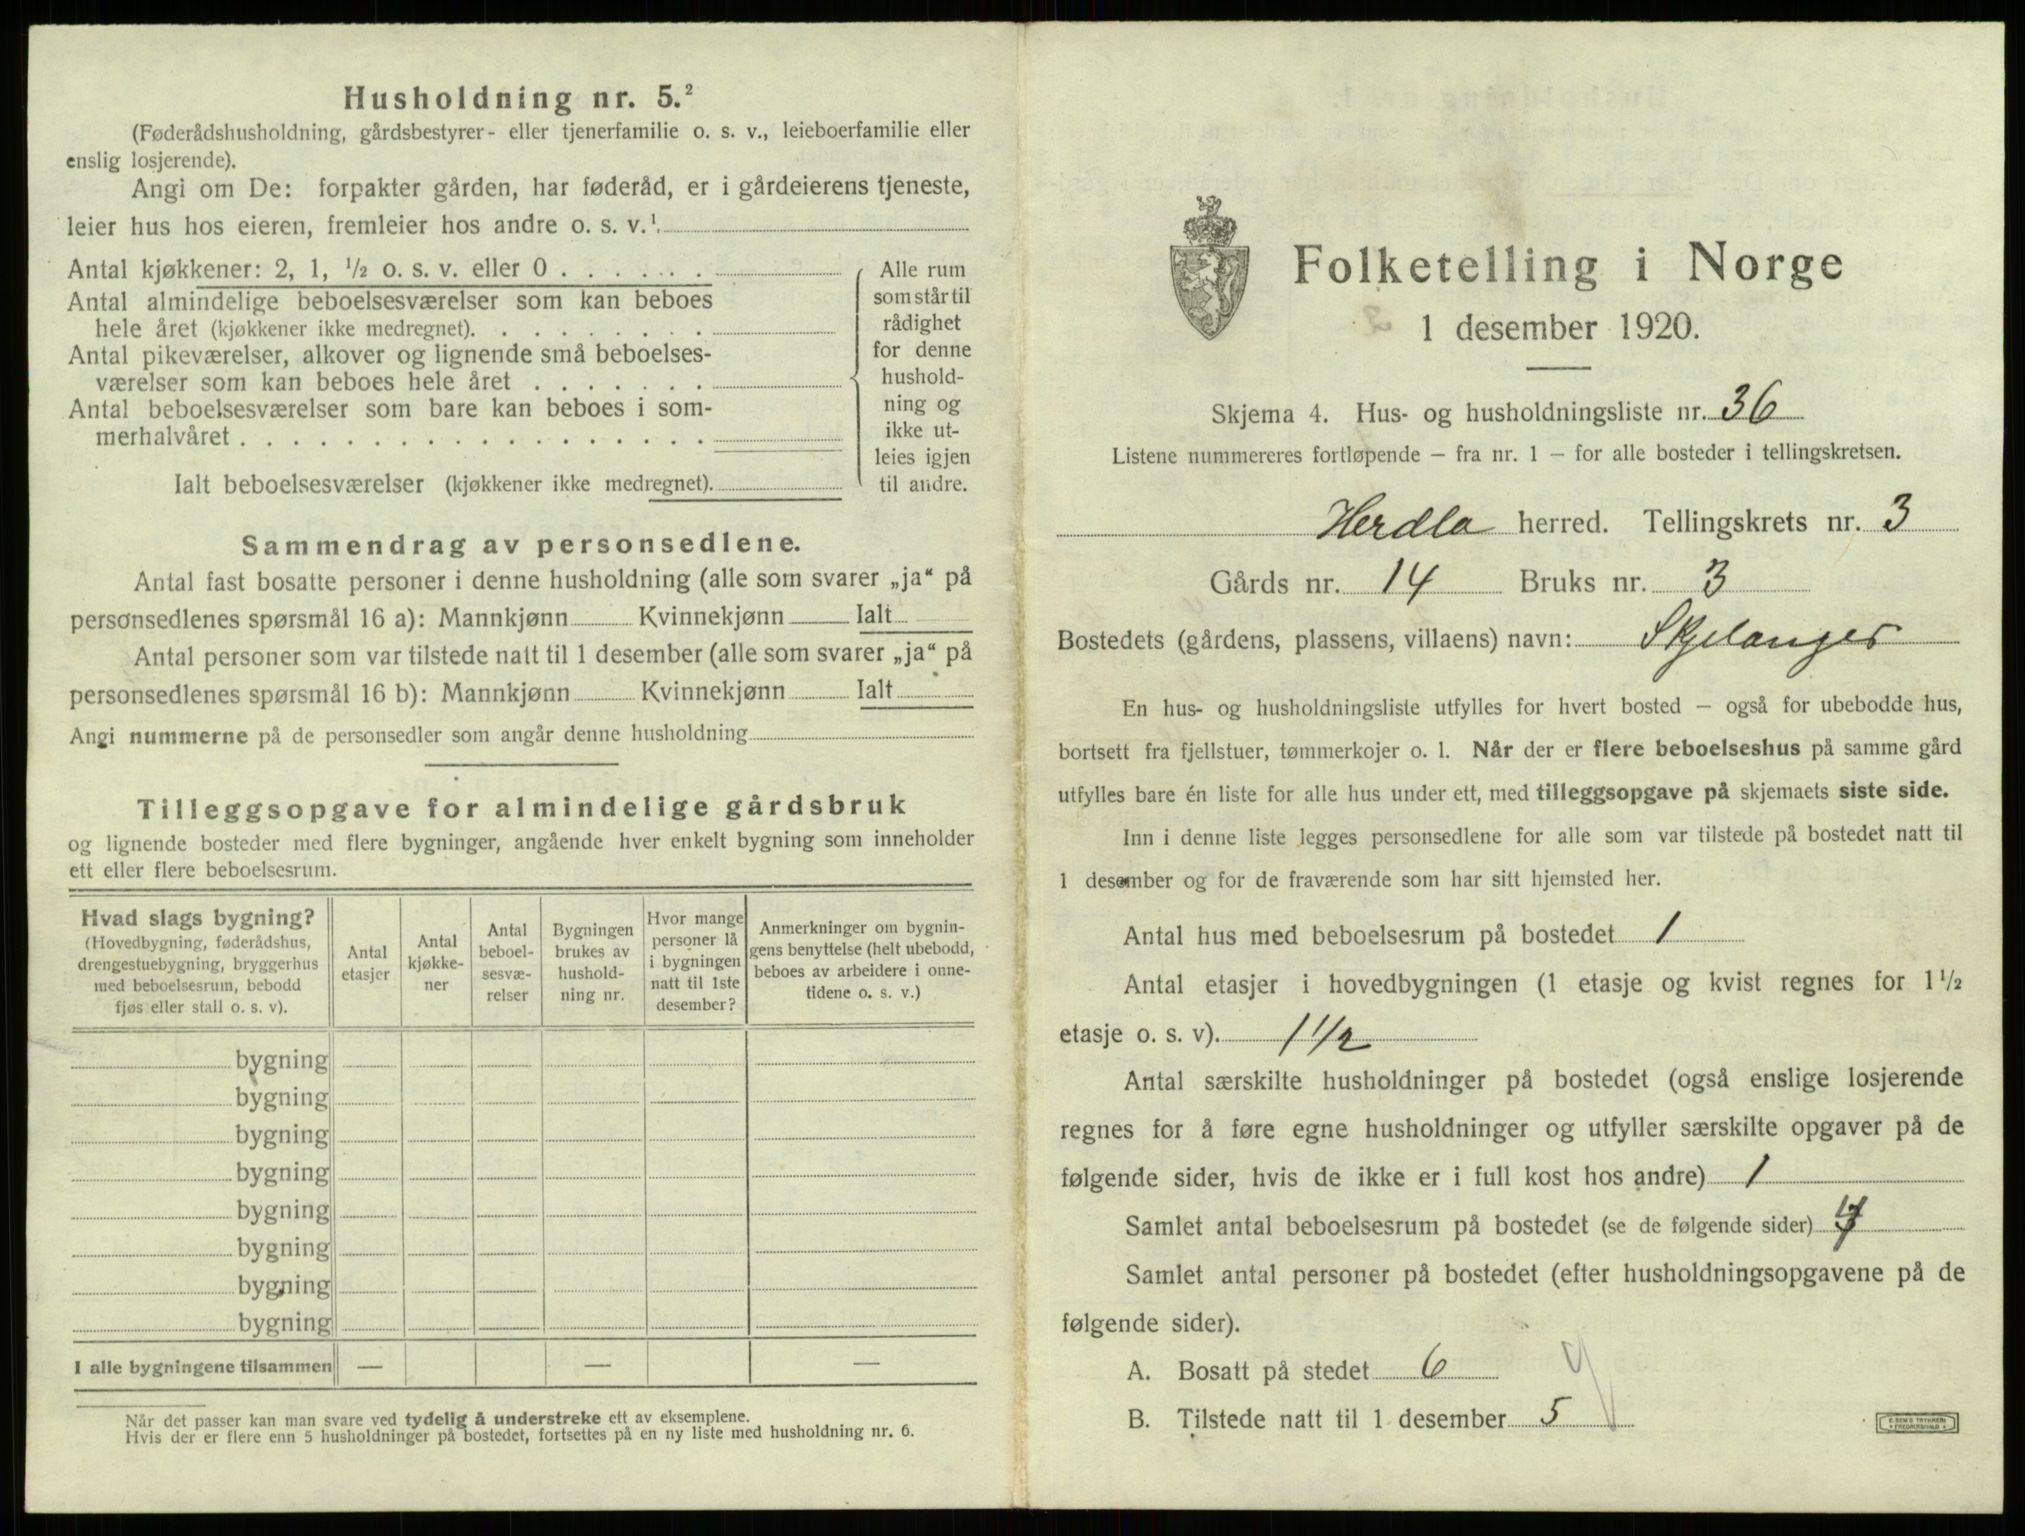 Husholdning nr. 5.²
(Føderådshusholdning, gårdsbestyrer- eller tjenerfamilie o. s. v., leieboerfamilie eller
enslig losjerende).
Angi om De: forpakter gården, har føderåd, er i gårdeierens tjeneste,
leier hus hos eieren, fremleier hos andre o. s. v.¹
Antal kjøkkener: 2, 1, ½ o. s. v. eller 0 . . . . . .
Antal almindelige beboelsesværelser som kan beboes
hele året (kjøkkener ikke medregnet). . . . . . . . .
Antal pikeværelser, alkover og lignende små beboelses-
værelser som kan beboes hele året . . . . . . .
Antal beboelsesværelser som bare kan beboes i som-
merhalvåret . . . . . . . . . . . . . . . . . .
Ialt beboelsesværelser (kjøkkener ikke medregnet).
Alle rum
som står til
rådighet
for denne
hushold-
ning og
ikke ut-
leies igjen
til andre.
Sammendrag av personsedlene.
Antal fast bosatte personer i denne husholdning (alle som svarer „ja“ på
personsedlenes spørsmål 16 a): Mannkjønn Kvinnekjønn Ialt
Antal personer som var tilstede natt til 1 desember (alle som svarer „ja“ på
personsedlenes spørsmål 16 b): Mannkjønn Kvinnekjønn Ialt
Angi nummerne på de personsedler som angår denne husholdning
Tilleggsopgave for almindelige gårdsbruk
og lignende bosteder med flere bygninger, angående hver enkelt bygning som inneholder
ett eller flere beboelsesrum.
Hvad slags bygning?
(Hovedbygning, føderådshus,
drengestuebygning, bryggerhus
med beboelsesrum, bebodd
fjøs eller stall o. s. v).
Antal
etasjer
Antal
kjøkke-
ner
Antal
beboel-
sesvæ-
relser
Bygningen
brukes av
hushold-
ning nr.
Hvor mange
personer lå
i bygningen
natt til 1ste
desember?
Anmerkninger om bygnin-
gens benyttelse (helt ubebodd,
beboes av arbeidere i onne-
tidene o. s. v.)
bygning
bygning
bygning
bygning
bygning
bygning
bygning
bygning
I alle bygningene tilsammen — — —
Når det passer kan man svare ved tydelig å understreke ett av eksemplene.
Hvis der er flere enn 5 husholdninger på bostedet, fortsettes på en ny liste med husholdning nr. 6.
Folketelling i Norge
1 desember 1920.
Skjema 4. Hus- og husholdningsliste nr. 36
Listene nummereres fortløpende — fra nr. 1 — for alle bosteder i tellingskretsen.
Herdla herred. Tellingskrets nr. 3
Gårds nr. 14 Bruks nr. 3
Bostedets (gårdens, plassens, villaens) navn: Skjelanger
En hus- og husholdningsliste utfylles for hvert bosted — også for ubebodde hus,
bortsett fra fjellstuer, tømmerkojer o. l. Når der er flere beboelseshus på samme gård
utfylles bare én liste for alle hus under ett, med tilleggsopgave på skjemaets siste side.
Inn i denne liste legges personsedlene for alle som var tilstede på bostedet natt til
1 desember og for de fraværende som har sitt hjemsted her.
Antal hus med beboelsesrum på bostedet 1
Antal etasjer i hovedbygningen (1 etasje og kvist regnes for 1½
etasje o. s. v). 1 1/2
Antal særskilte husholdninger på bostedet (også enslige losjerende
regnes for å føre egne husholdninger og utfyller særskilte opgaver på de
følgende sider, hvis de ikke er i full kost hos andre) 1
Samlet antal beboelsesrum på bostedet (se de følgende sider)
Samlet antal personer på bostedet (efter husholdningsopgavene på de
følgende sider).
A. Bosatt på stedet 6
B. Tilstede natt til 1 desember 5
E. SEM'S TRYKKERI
FREDRIKSHALD